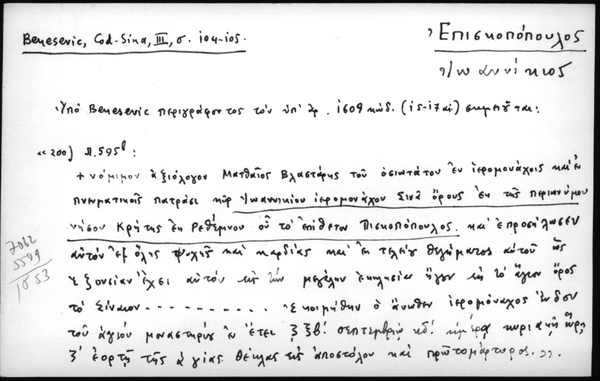 Benesevic, Cod-Sina, III, σ. 104-105.
Ἐπισκοπόπουλος
Ἰωαννίκιος
Ὑπὸ Benesevic περιγράφοντος τὸν ὑπ' ἀρ. 1609 κώδ. (15-17 αἰ.) σημειοῦται:
«200) Л.595β:
+ νόμιμον ἀξιόλογον Ματθαῖος Βλαστάρης τοῦ ὁσιωτάτου ἐν ἱερομονάχοις καὶ ἐν
πνευματικοῖς πατράσι κὺρ Ἰωαννικίου ἱερομονάχου Σινᾶ ὄρους ἐκ τῆς περιωνύμου
νήσου Κρήτης ἐκ Ρεθέμνου οὗ τὸ ἐπίθετον Πισκοπόπουλος. καὶ ἐπροσήλωσεν
αὐτὸν ἐξ ὅλης ψυχῆς καὶ καρδίας καὶ ἐκ τελείου θελήματος αὐτοῦ ὡς
ἐξουσίαν ἔχει αὐτὸν εἰς τὴν μεγάλην ἐκκλησίαν ἤγουν εἰς τὸ ἅγιον ὄρος
τὸ Σίναιον - - - - - - - - - - Ἐκοιμήθην ὁ ἄνωθεν ἱερομόναχος ἔνδον
τοῦ ἁγίου μοναστηρίου ἐν ἔτει ζξβ' σεπτεμβρίῳ κδ' ἡμέρᾳ κυριακῇ ὥρᾳ
ζ' ἑορτῇ τῆς ἁγίας Θέκλας τῆς ἀποστόλου καὶ πρωτομάρτυρος.»
7062
5509
1553